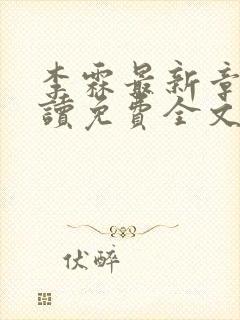 李霖最新章
讀免費全文
伏醉